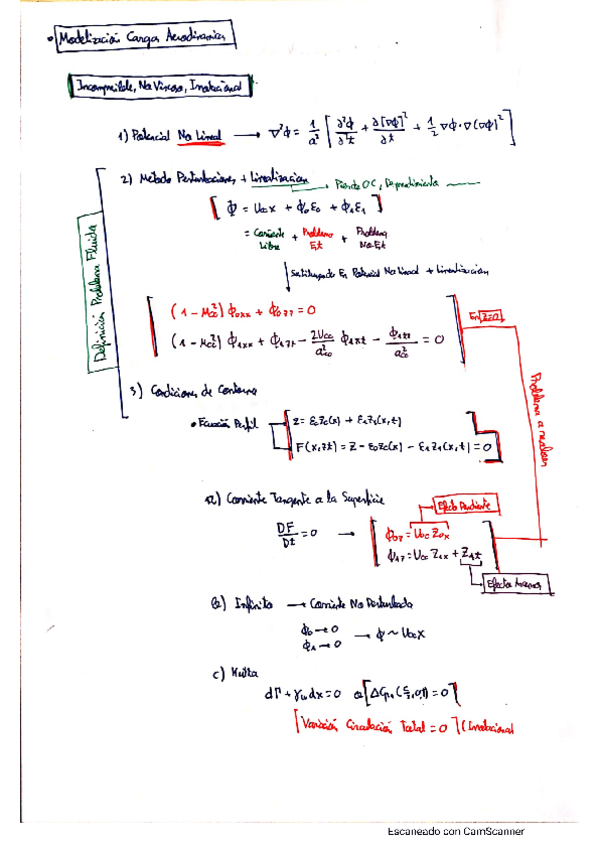 Modelización Cargas Aerodinámicas
Incompresible, No Viscoso, Irrotacional
1) Potencial No Lineal → ∇²Φ = 1/a² [ ∂²Φ/∂²t + ∂[∇Φ]²/∂t + 1/2 ∇Φ·∇(∇Φ)² ]
Definición Problema Fluido
2) Método Perturbaciones + Linealización
[ Φ = U∞x + ϕ₀ε₀ + ϕ₁ε₁ ]
= Corriente Libre + Problema Est + Problema No Est
Sustituyendo En Potencial No Lineal + Linealización
(1 - M∞²) ϕ₀xx + ϕ₀zz = 0
En z=0
(1 - M∞²) ϕ₁xx + ϕ₁zz - 2U∞/a∞² ϕ₁xt - ϕ₁tt/a∞² = 0
Problema a resolver
3) Condiciones de Contorno
• Ecuación Perfil
z = ε₀z₀(x) + ε₁z₁(x,t)
F(x,z,t) = z - ε₀z₀(x) - ε₁z₁(x,t) = 0
a) Corriente Tangente a la Superficie
Efecto Pendiente
DF/Dt = 0 → ϕ₀z = U∞ z₀x
ϕ₁z = U∞ z₁x + z₁t
Efecto
b) Infinito → Corriente No Perturbada
ϕ₀ → 0
ϕ₁ → 0 → Φ ~ U∞x
c) Kutta
dΓ + γω dx = 0
[Variación Circulación Total = 0]
Escaneado con CamScanner